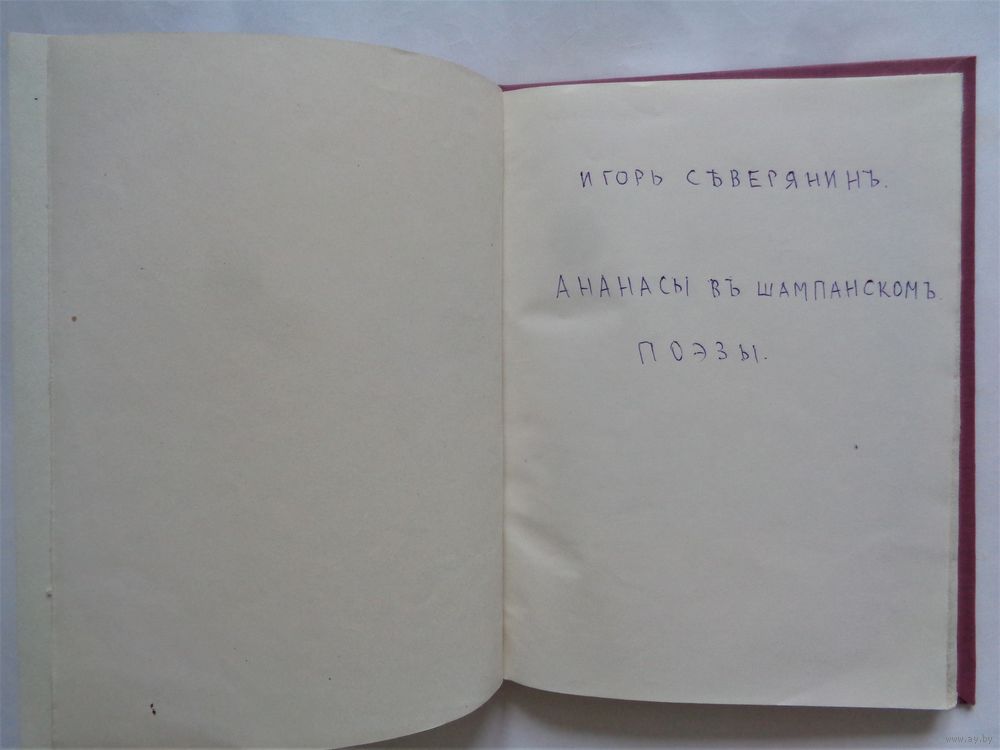 ИГОРЬ СѢВЕРЯНИНЪ.
АНАНАСЫ ВЪ ШАМПАНСКОМЪ.
ПОЭЗЫ.
www.ay.by